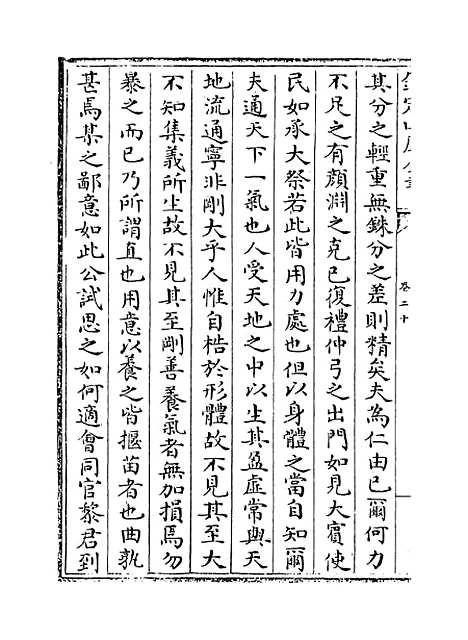 欽定四庫全書
卷二十
其分之輕重無銖分之差則精矣夫為仁由已爾何力
不足之有顔淵之克已復禮仲弓之出門如見大賓使
民如承大祭若此皆用力處也但以身體之當自知爾
夫通天下一氣也人受天地之中以生其盈虚常與天
地流通寧非剛大乎人惟自梏於形體故不見其至大
不知集義所生故不見其至剛善養氣者無加損焉勿
暴之而已乃所謂直也用意以養之皆揠苗者也曲孰
甚焉某之鄙意如此公試思之如何適會同官黎君到